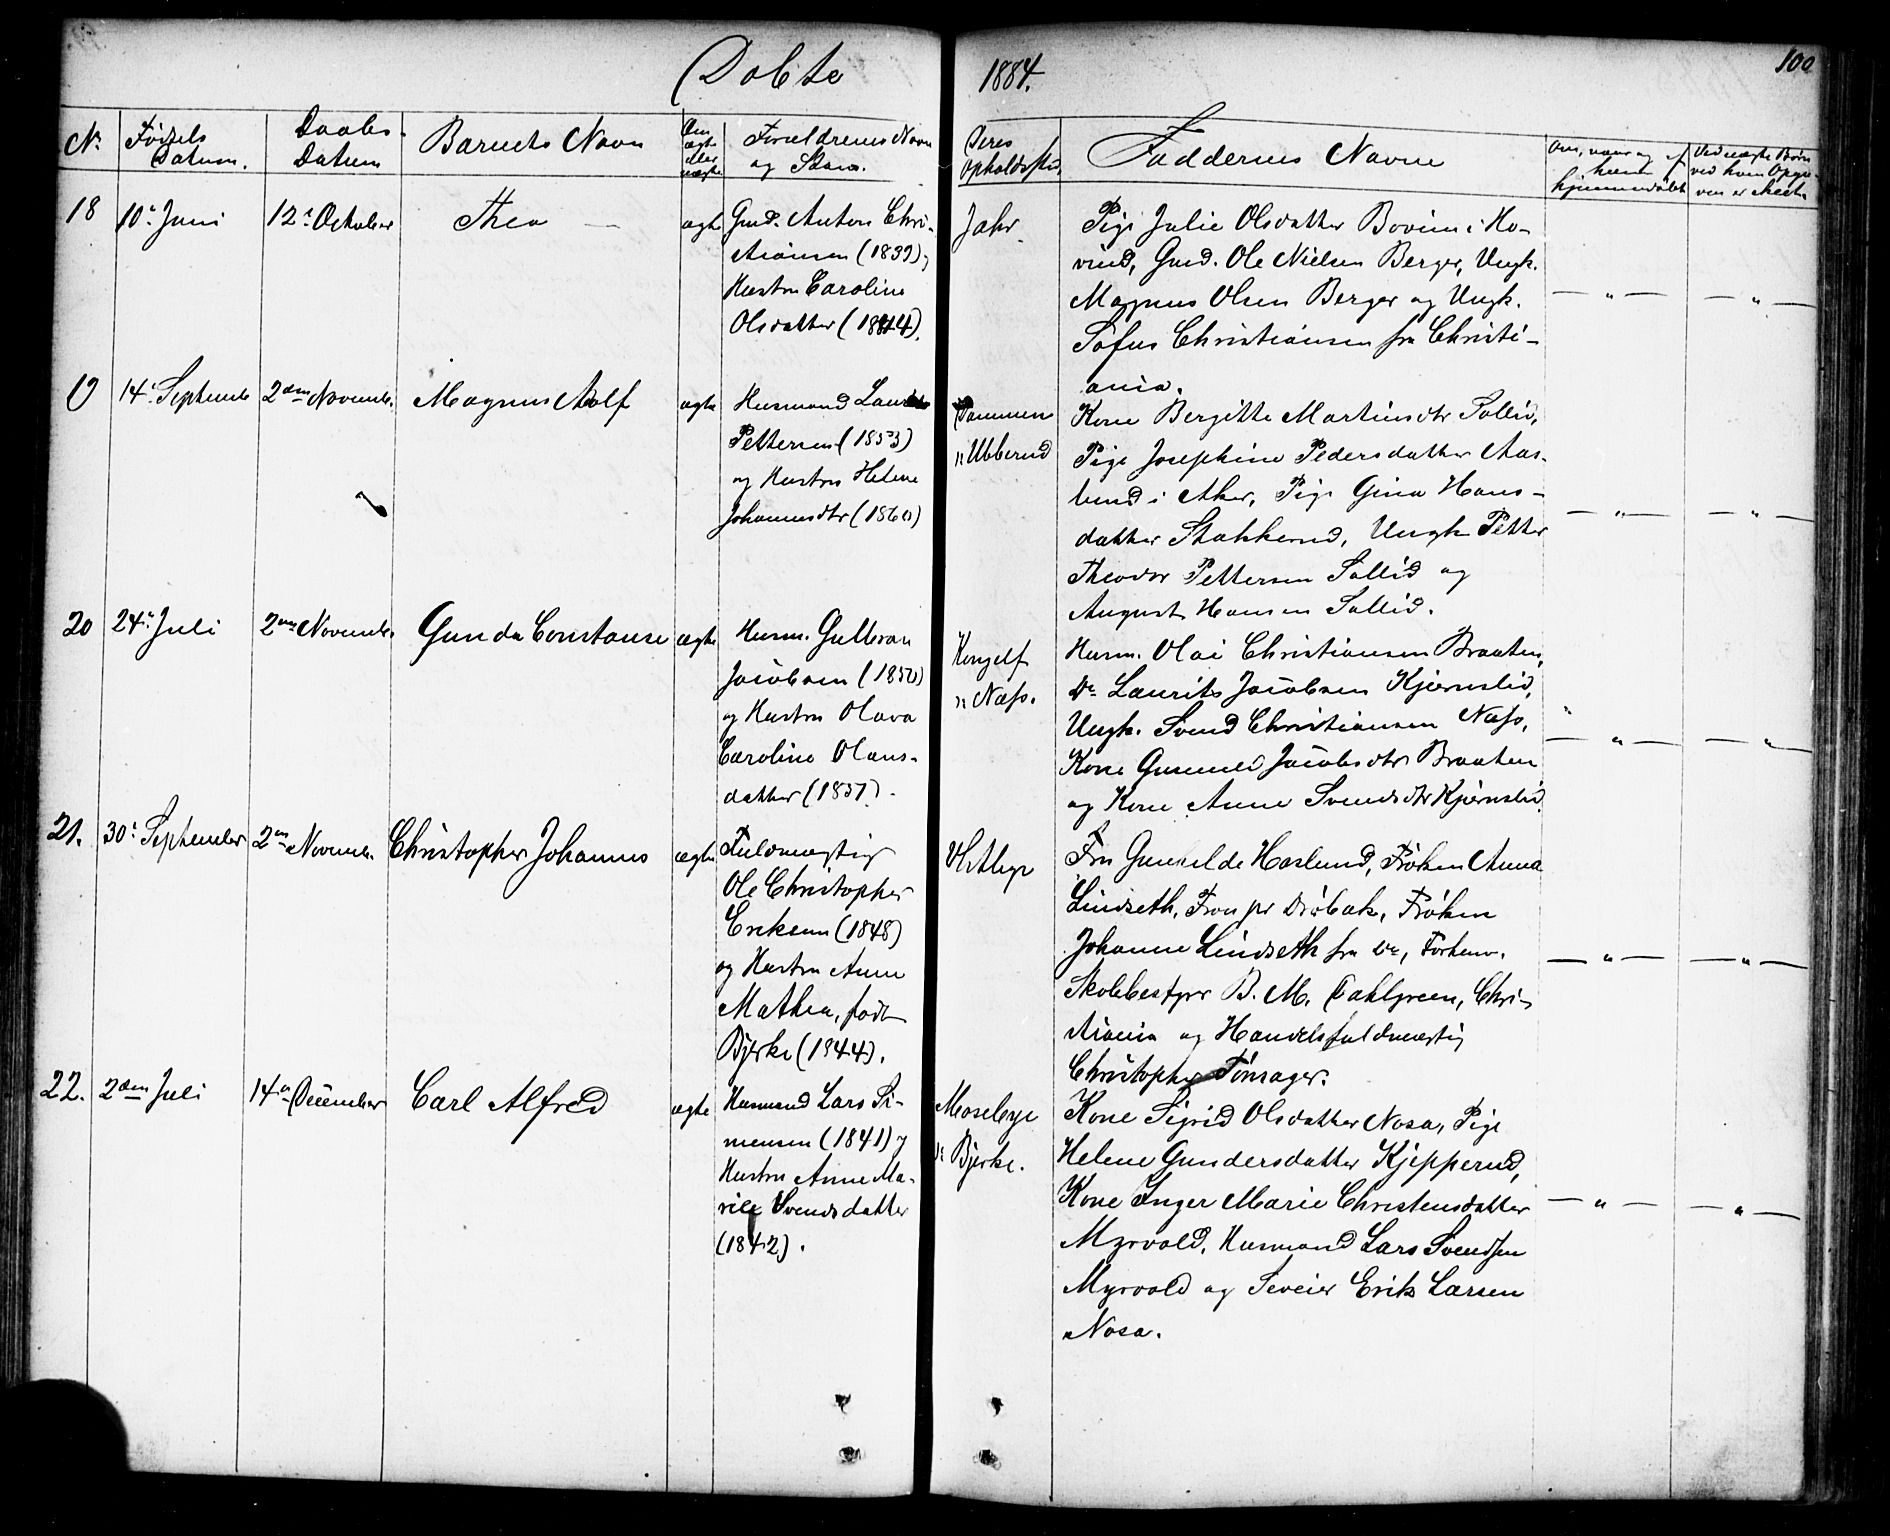 Døbte
1884.
100
Nr.
Fødsels Datum.
Daabs-Datum
Barnets Navn
Om ægte eller uægte
Forældrenes Navn og Stand.
Deres Opholdssted.
Faddernes Navne
Om, naar og af hvem hjemmedøbt
Ved uægte Børn ved hvem Opgiven er skeet
18
10de Juni
12te October
Thea
ægte
Gmd. Anton Chri-
stiansen (1839) og
Hustru Caroline
Olsdatter (1844).
Jahr
Pige Julie Olsdatter Bovim i Ho-
vind, Gmd. Ole Nielsen Berger, Ungk.
Magnus Olsen Berger og Ungk.
Sofus Christiansen fra Christi-
ania.
— " —
— " —
19
14de Septembr
2den Novembr.
Magnus Adolf
ægte
Husmand Laurits
Pettersen (1853)
og Hustru Helene
Johannesdtr (1860)
Dammen
u: Ubberud
Kone Bergitte Martinsdtr Sollid,
Pige Josephine Pedersdatter Aas-
lund i Aker, Pige Gina Hans-
datter Stakkerud, Ungk. Petter
Theodor Pettersen Sollid og
August Hansen Sollid.
— " —
— " —
20
24de Juli
2den Novembr.
Gunda Constanse
ægte
Husm. Gulbran
Jacobsen (1850)
og Hustru Olava
Caroline Olaus-
datter (1857).
Kongelf
u: Næss.
Husm. Olai Christiansen Braaten,
Do Laurits Jacobsen Kjernslid,
Ungk. Svend Christiansen Næss,
Kone Gunnild Jacobsdtr Braaten
og Kone Anne Svendsdtr Kjernslid.
— " —
— " —
21.
30te September
2den Novemb.
Christopher Johannes
ægte
Fuldmægtig
Ole Christopher
Eriksen (1848)
og Hustru Anne
Mathea, født
Bjerke (1844).
Østbye
Fru Gunhilde Haslund, Frøken Anna
Lindseth, Fron pr Drøbak, Frøken
Johanne Lindseth fra Do, Forhenv.
Skolebestyrer B. M. Dahlgreen, Chri-
stiania og Handelsfuldmægtig
Christopher Fønsager.
— " —
— " —
22.
2den Juli
14de December
Carl Alfred
ægte
Husmand Lars Si-
mensen (1841) og
Hustru Anne Ma-
rie Svendsdatter
(1842).
Mosebye
u: Bjerke.
Kone Sigrid Olsdatter Nosa, Pige
Helene Gundersdatter Kjepperud,
Kone Inger Marie Christensdatter
Myrvold, Husmand Lars Svendsen
Myrvold og Sveier Erik Larsen
Nosa.
— " —
— " —